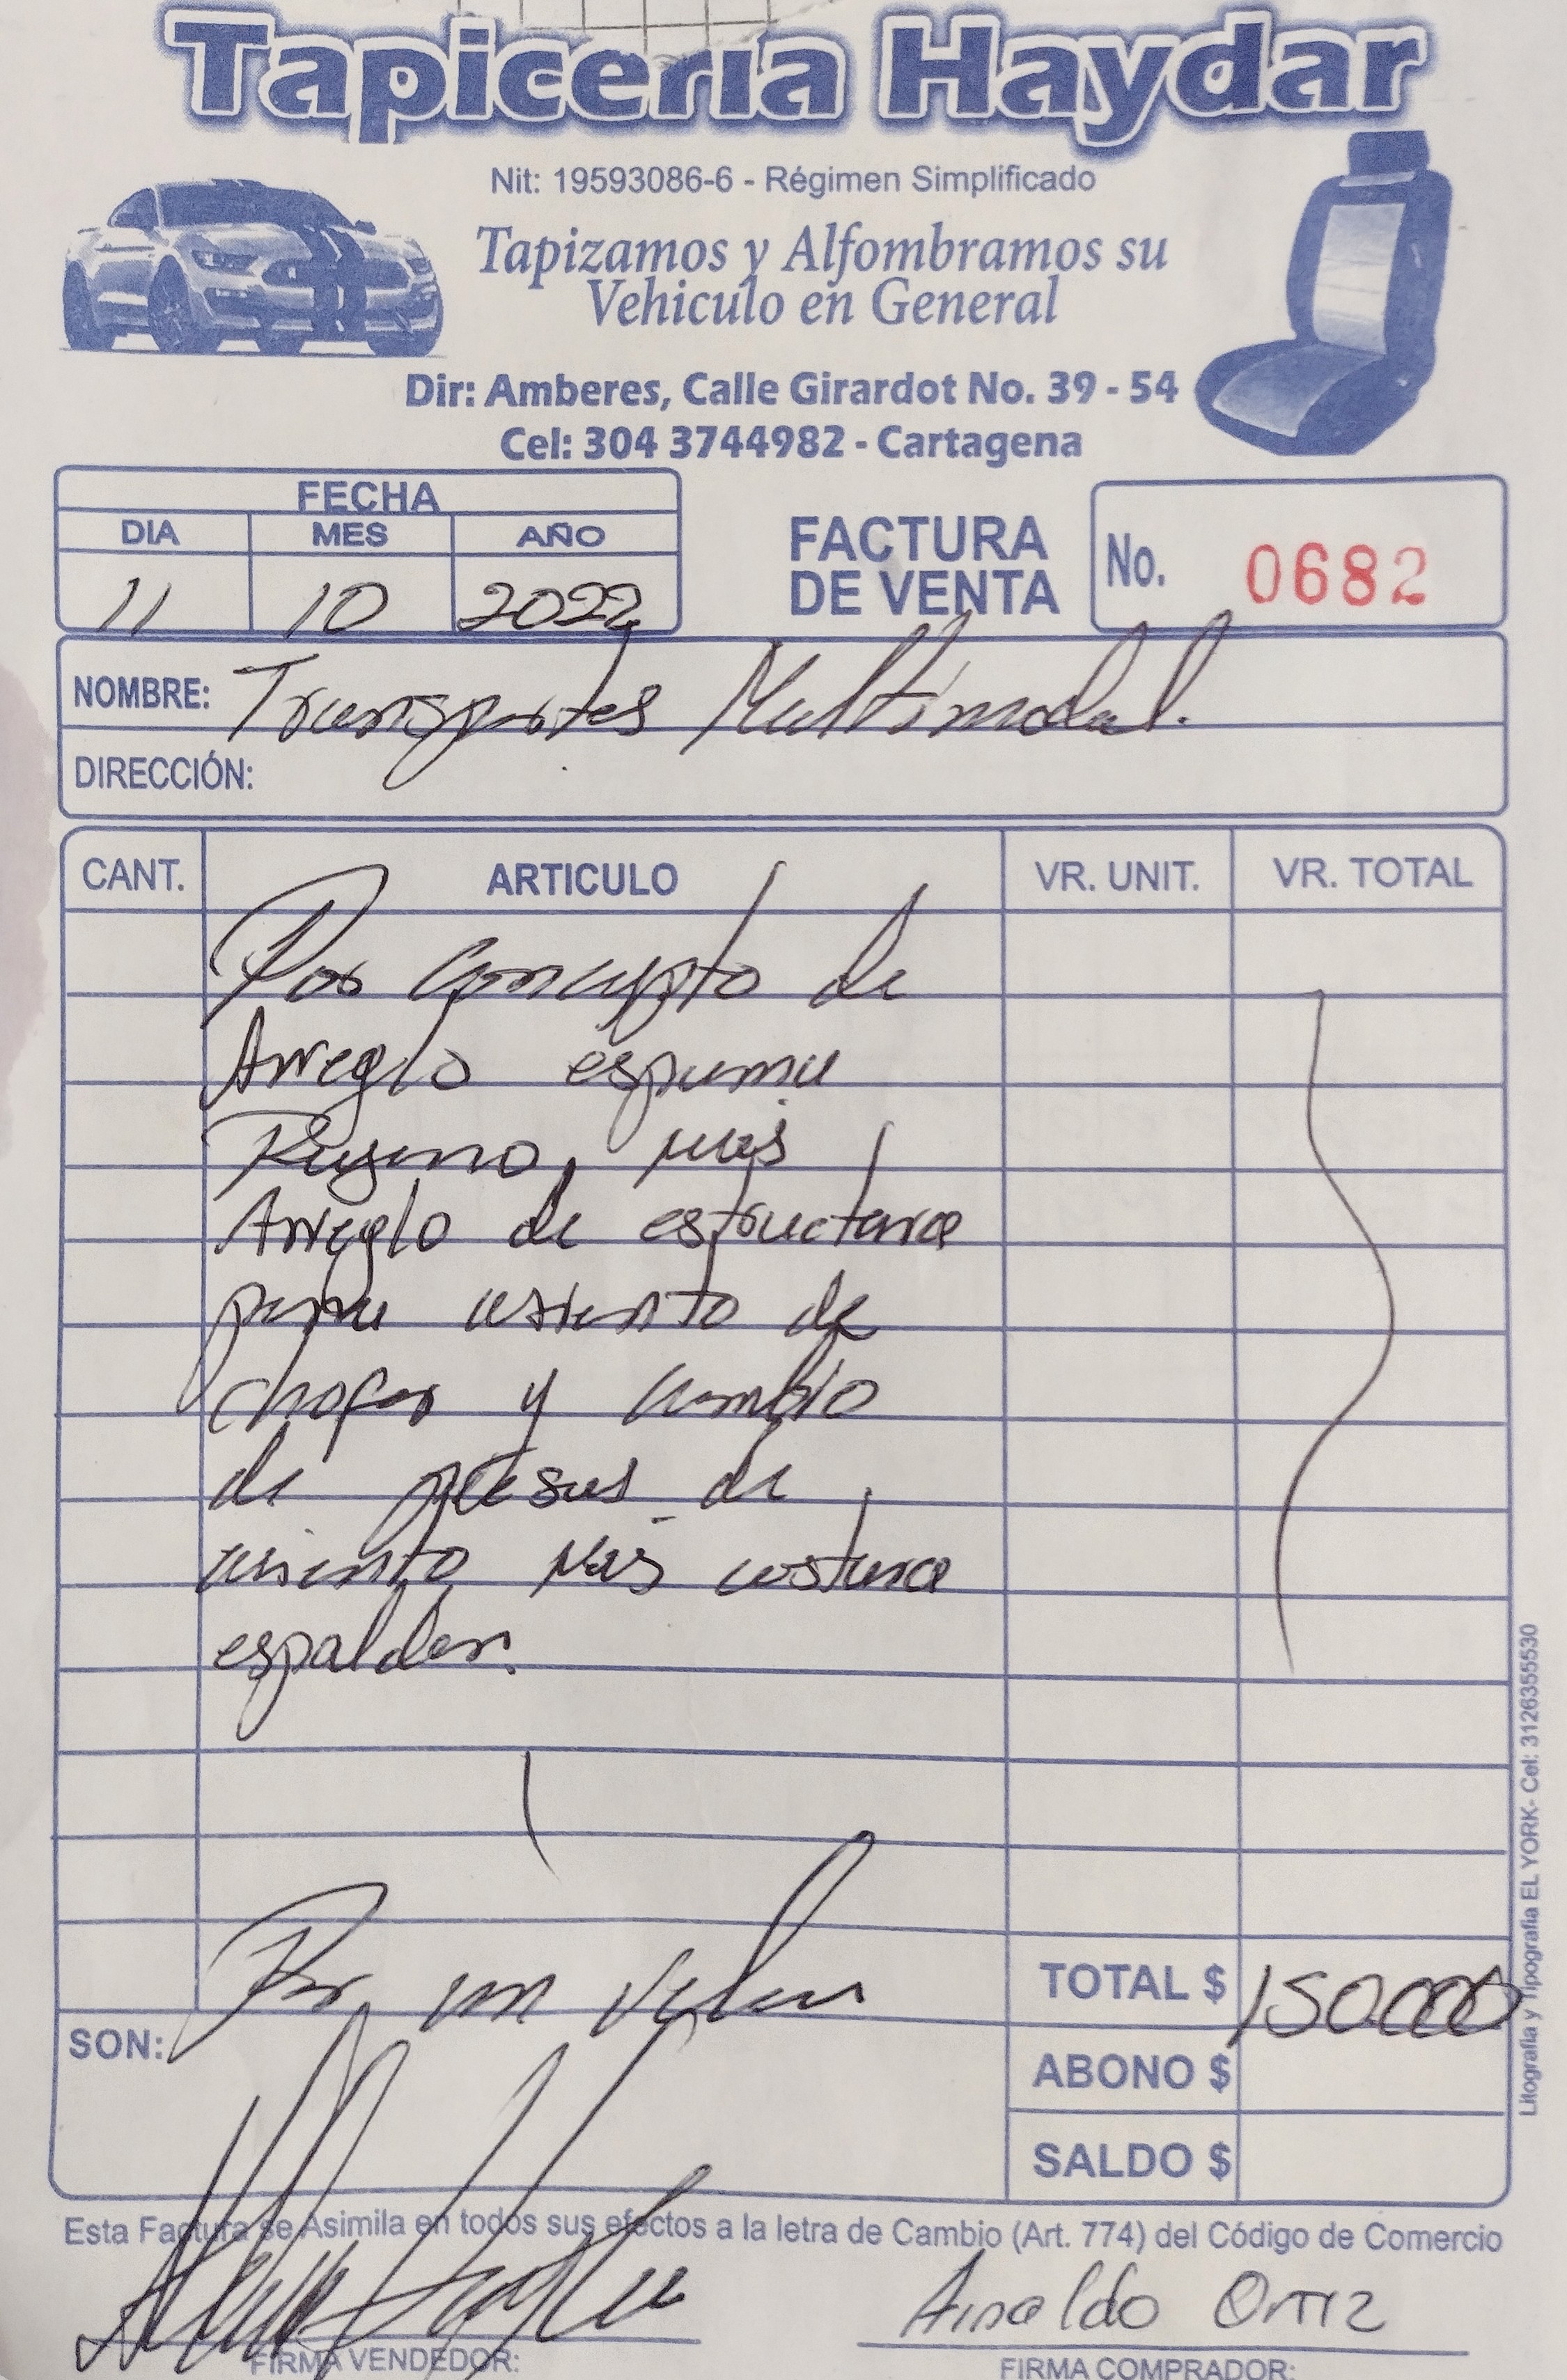 Tapiceria Haydar
Nit: 19593086-6 - Régimen Simplificado
Tapizamos y Alfombramos su
Vehiculo en General
Dir: Amberes, Calle Girardot No. 39 - 54
Cel: 304 3744982 - Cartagena
FECHA
DIA MES AÑO
11 10 2022
FACTURA
DE VENTA
No. 0682
NOMBRE: Transportes Multimodal.
DIRECCIÓN:
CANT. ARTICULO VR. UNIT. VR. TOTAL
Por concepto de
Arreglo espuma
mas
Arreglo de estructura
para asiento de
chofer y cambio
de piesas de
asiento mas costura
espaldar.
Por un valor
TOTAL $ 150.000
SON:
ABONO $
SALDO $
Esta Factura se Asimila en todos sus efectos a la letra de Cambio (Art. 774) del Código de Comercio
Arnaldo Ortiz
FIRMA VENDEDOR: FIRMA COMPRADOR:
Litografia y Tipografia EL YORK- Cel: 3126355530